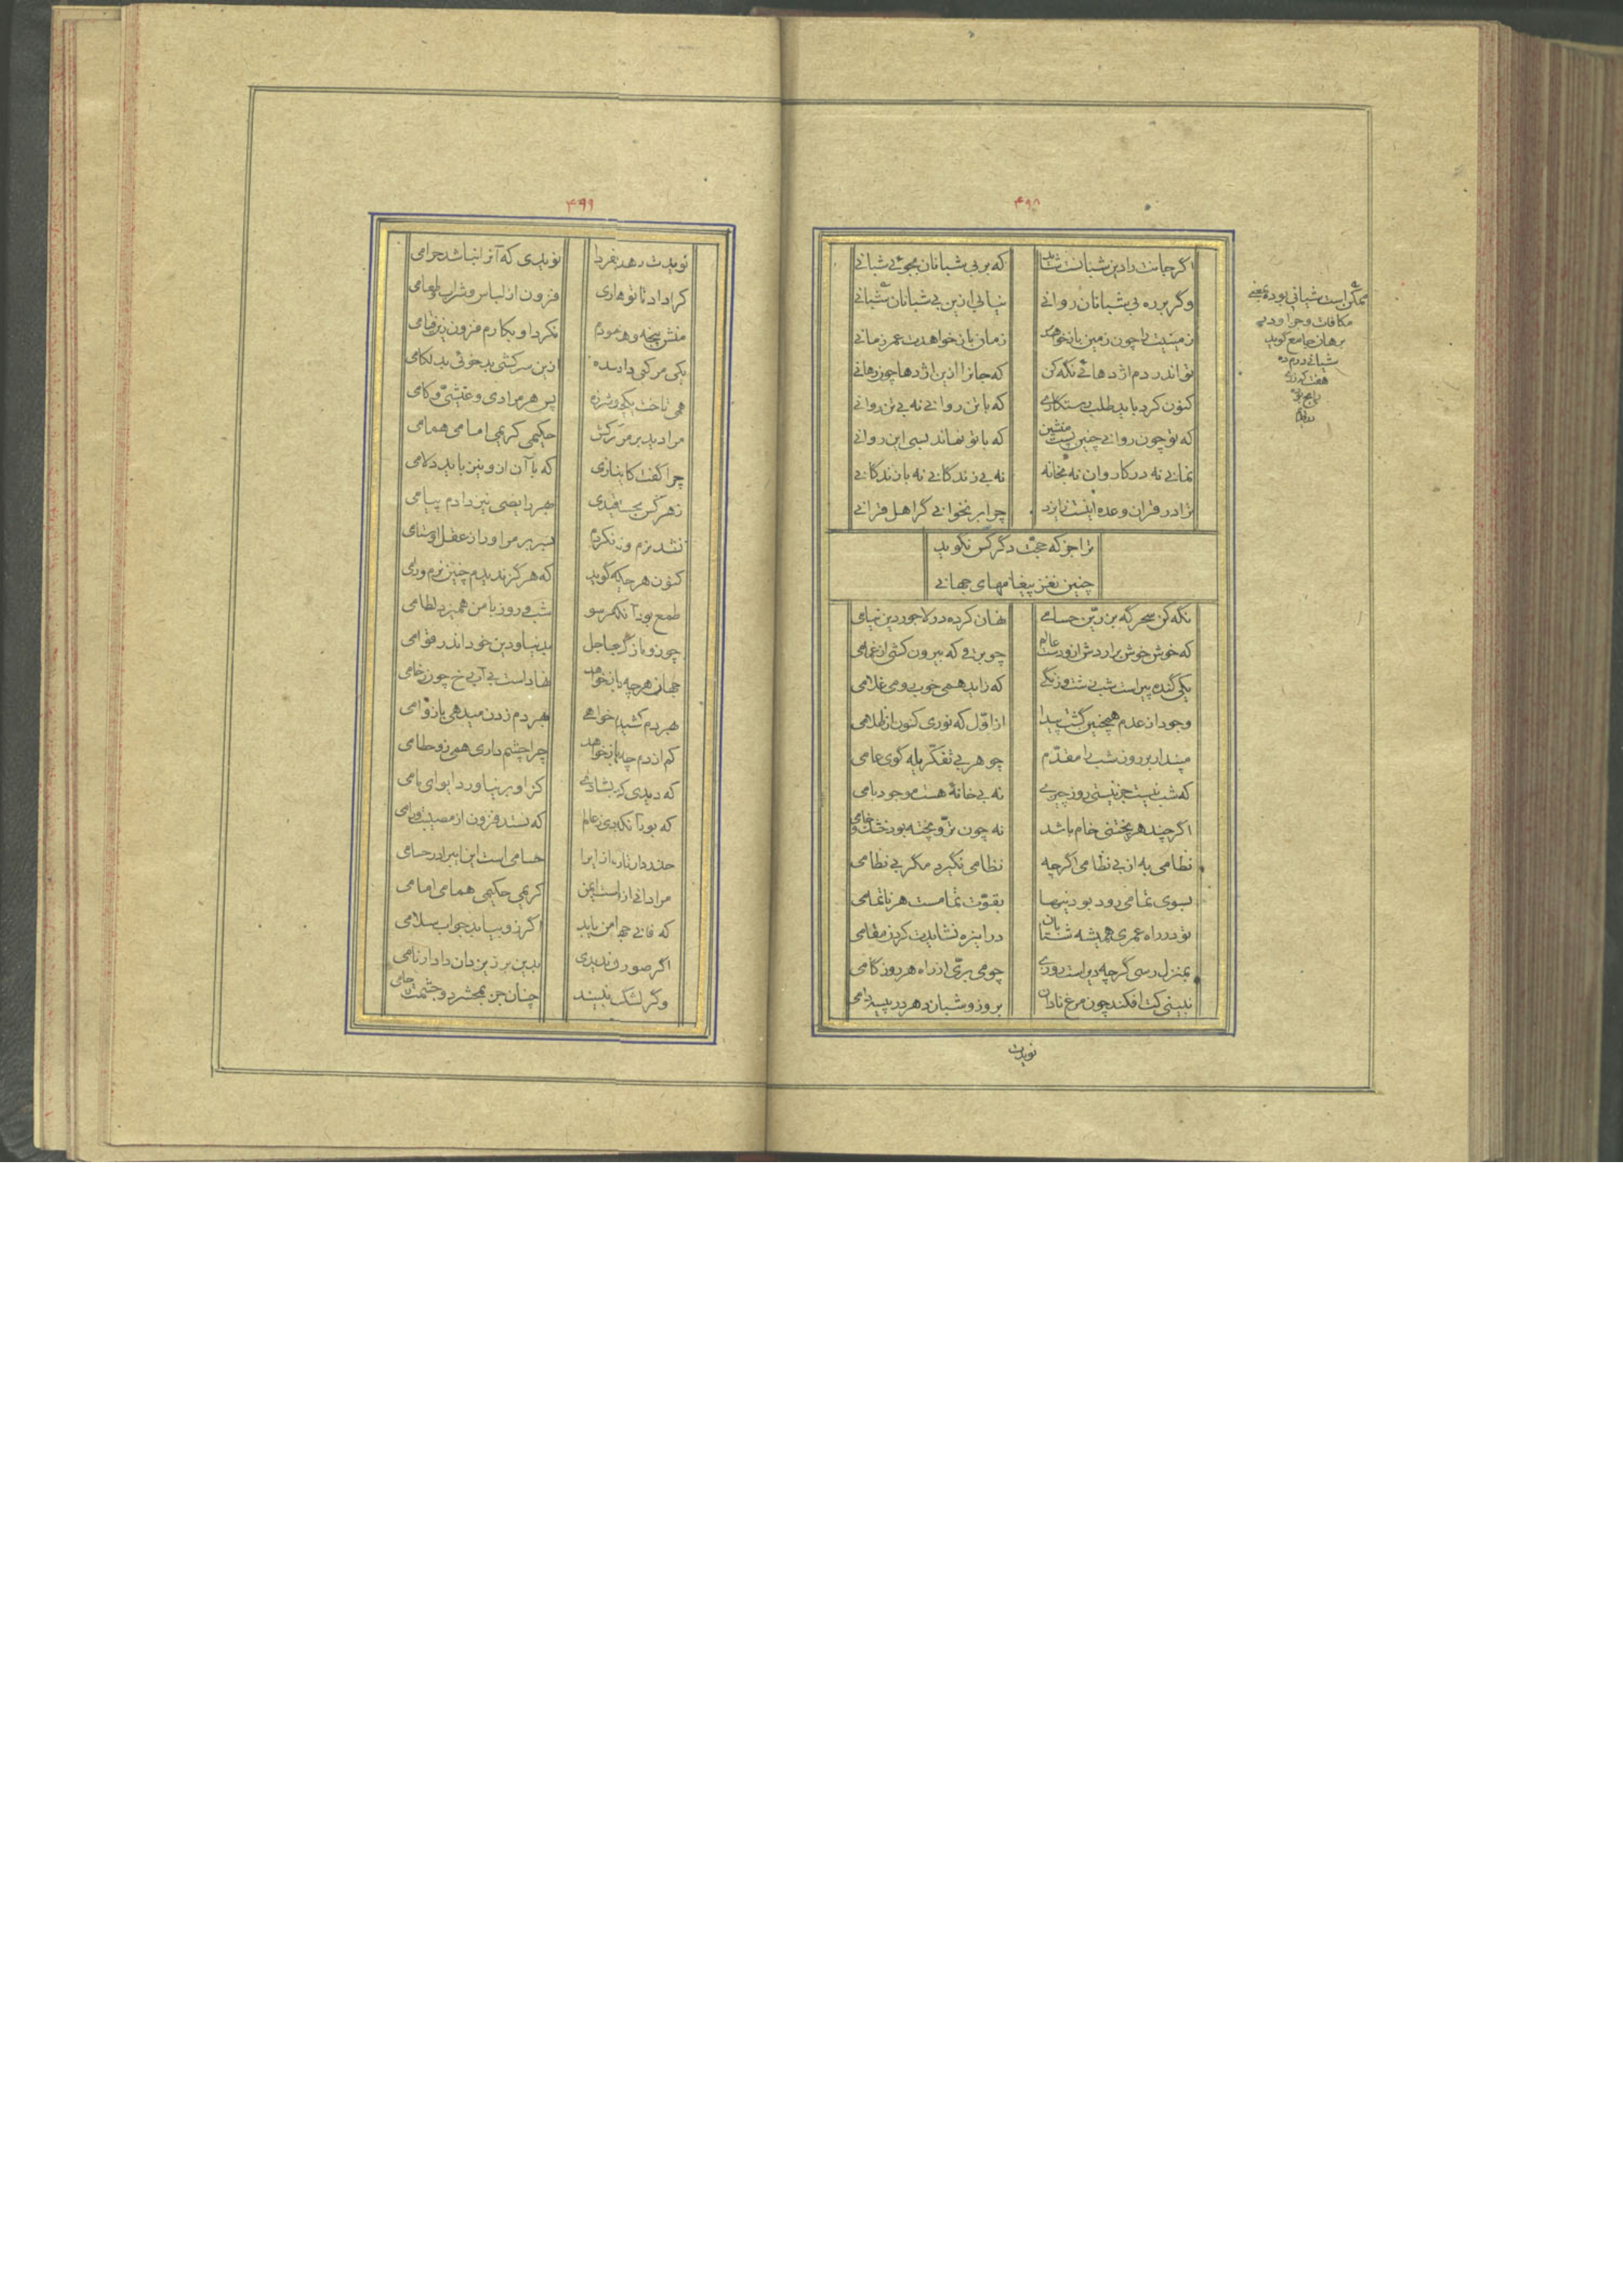 ۴۹۸
اگر جانت را دین شبانست شاید که بر بی شبانان بجوئی شبانی
وگر بر ره بی شبانان روانی نیابی ازین بی شبانان شبانی
زمینیت را چون زمین باز خواهد زمان باز خواهدت عمر زمانی
تو اندر دم اژدهائی نگه کن که جانرا ازین اژدها چون رهانی
کنون کرد باید طلب رستگاری که با تن روانی نه بی تن روانی
که تو چون روانی چنین پست منشین که با تو نماند بسی این روانی
نمانی نه در کاروان نه بخانه نه بی زندگانی نه با زندگانی
ترا در قران وعده اینست از ایزد چرا بر نخوانی گر اهل قرانی
ترا جز که حجّت دگر کس نگوید
چنین نغز پیغامهای جهانی
نگه کن سحرگه بزرّین حسامی نهان کرده در لاجوردین نیامی
که خوش خوش برآردش ازو دست عالم چو برقی که بیرون کشی از غمامی
یکی گنده پیر است شب زشت و زنگی که زاید همی خوب رومی غلامی
وجود از عدم همچنین گشت پیدا از اوّل که نوری کنون از ظلامی
مپندار بر روز شب را مقدّم چو هر بی تفکّر یله گوی عامی
که شب نیست جز نیستی روز چیزی نه بی خانهٔ هست موجود بامی
اگر چند هر پختنی خام باشد نه چون ترّ و پخته بود خشک و خامی
نظامی به از بی نظامی اگرچه نظامی نگیرد مگر بی نظامی
بسوی تمامی رود بودنیها بقوّت تمامست هر ناتمامی
تو در راه عمری همیشه شتابان درین ره نشایدت کردن مقامی
بمنزل رسی گرچه دیر است روزی چو می برّی از راه هر روز گامی
نبینی کت افکند چون مرغ نادان بروز و شبان دهر در پیسه دامی
نویدت
ممکن است شبانی بوده بمعنی
مکافات و جزا و در
برهان جامع گوید
شبانی درم ده
۴۹۹
نویدت دهد هر بفردا نویدی که آنرا نباشد حرامی
کرا داد تا تو هاری فزون از لباس و شراب و طعامی
منش پنجه و هشت پیمودم نکرد او بکارم فزون زین قیامی
یکی مرکبی داد سده ازین سرکشی بدخوئی بدلگامی
همی تاخت یکچند شرزه پس هر مرادی و عیشی و کامی
مرا دید بر مرکبش حکیمی کریمی امامی همامی
چرا گفت کاینازی که با آن ازو نیز باید دلامی
زهر کس بجستم قیدی بهر رایضی نیز دادم پیامی
نشد نرم و نکردم بسر بر مر او را ز عقل اوستامی
کنون هرچکه گوید که هرگز ندیدم چنین نرم و رامی
طمع بود آنکهم سو شب و روز با من همیزد لطامی
چون و باز گر جاجل بدنیا و دین خود اندر قوامی
جهان هرچه باز خواهد نهاد است بی آب یخ چون رخامی
بهر دم کشیدن خواهی بهر دم زدن میدهی باز وامی
کم از دم چه باز خواهد چرا چشم داری همی زو حطامی
که دیدی که بشادی کز او بر نیاورد ابوای مامی
که بود آنکه دی ز عالم که نستد فزون از مصیبت ورامی
حذر دار تا ازیرا حسامی است این ای برادر حسامی
مرادانی از ایمن کریمی حکیمی همامی امامی
که فانی جهان یابد اگر زو بیابد جواب سلامی
اگر صور ندیدی بدین بر زمین دان دادار نامی
وگر لشکر نبیند چنان جز بمحشر دو چشمت زحامی